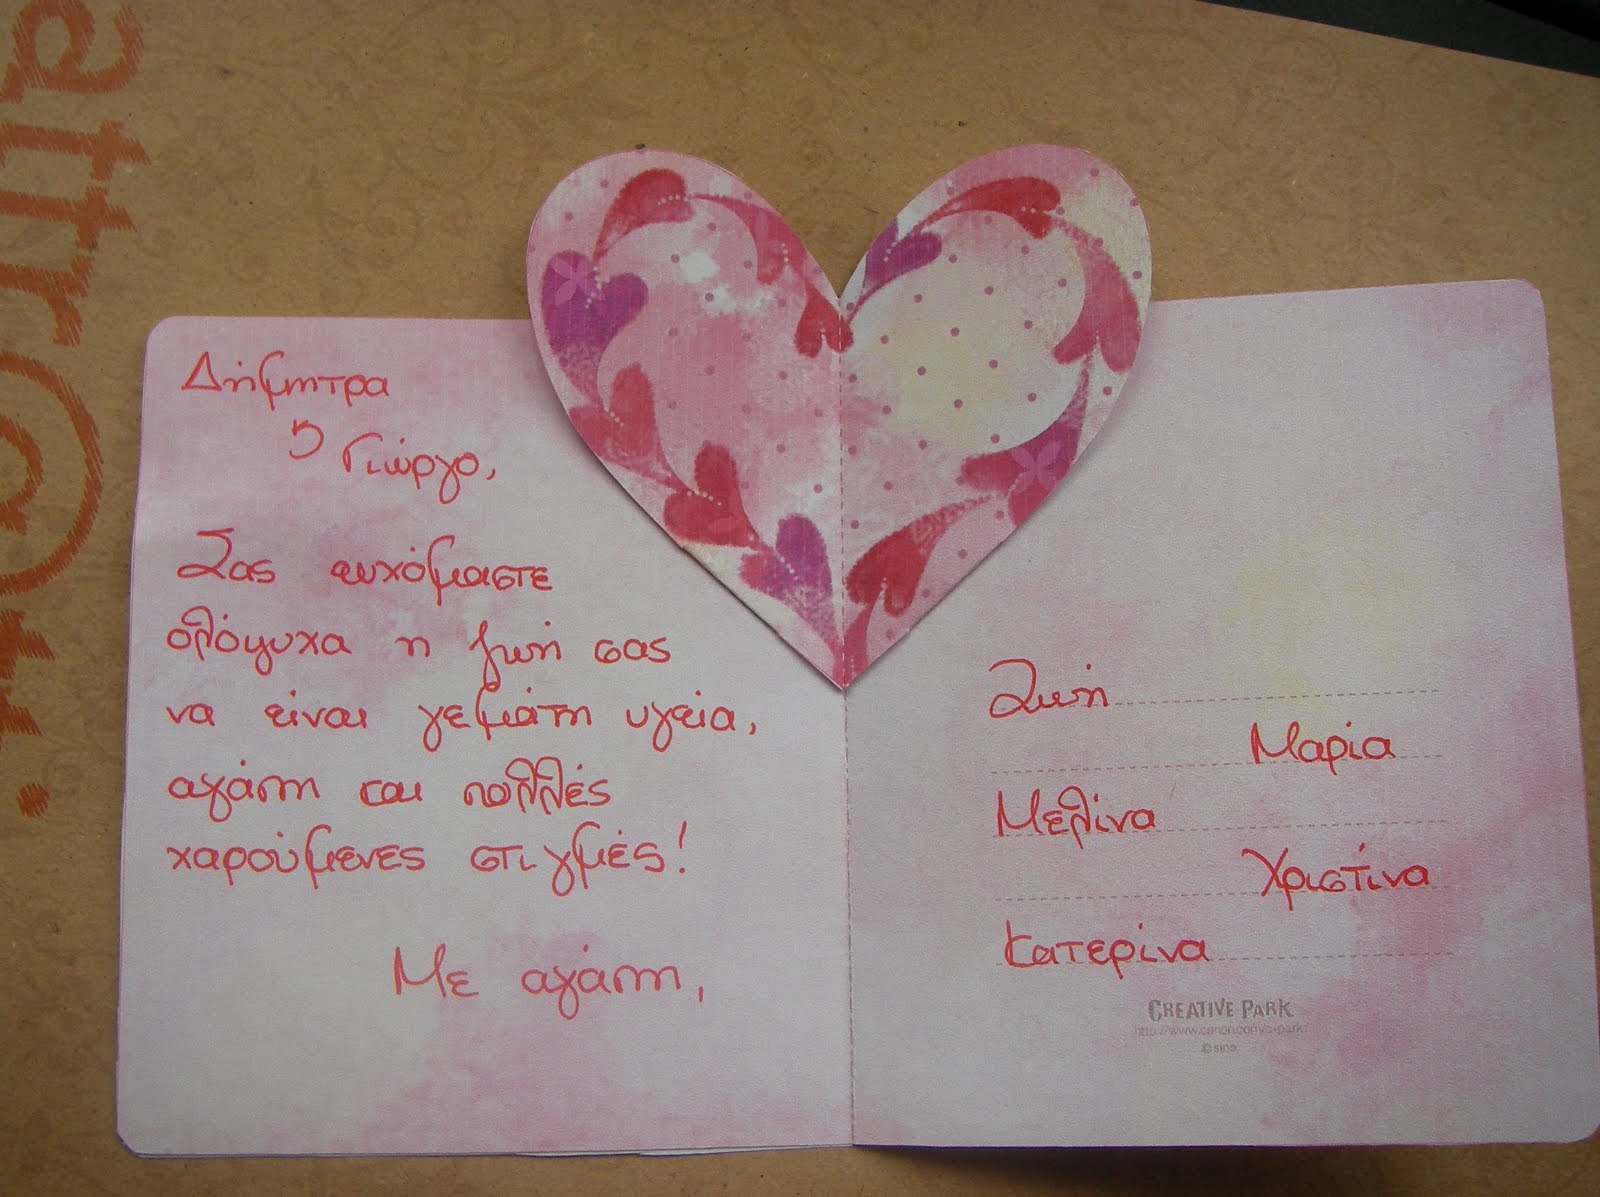 Δήμητρα
ϗ Γιώργο,
Σας ευχόμαστε
ολόψυχα η ζωή σας
να είναι γεμάτη υγεία,
αγάπη και πολλές
χαρούμενες στιγμές!
Με αγάπη,
Ζωή
Μαρία
Μελίνα
Χριστίνα
Κατερίνα
CREATIVE PARK
© sino
attr@tt.